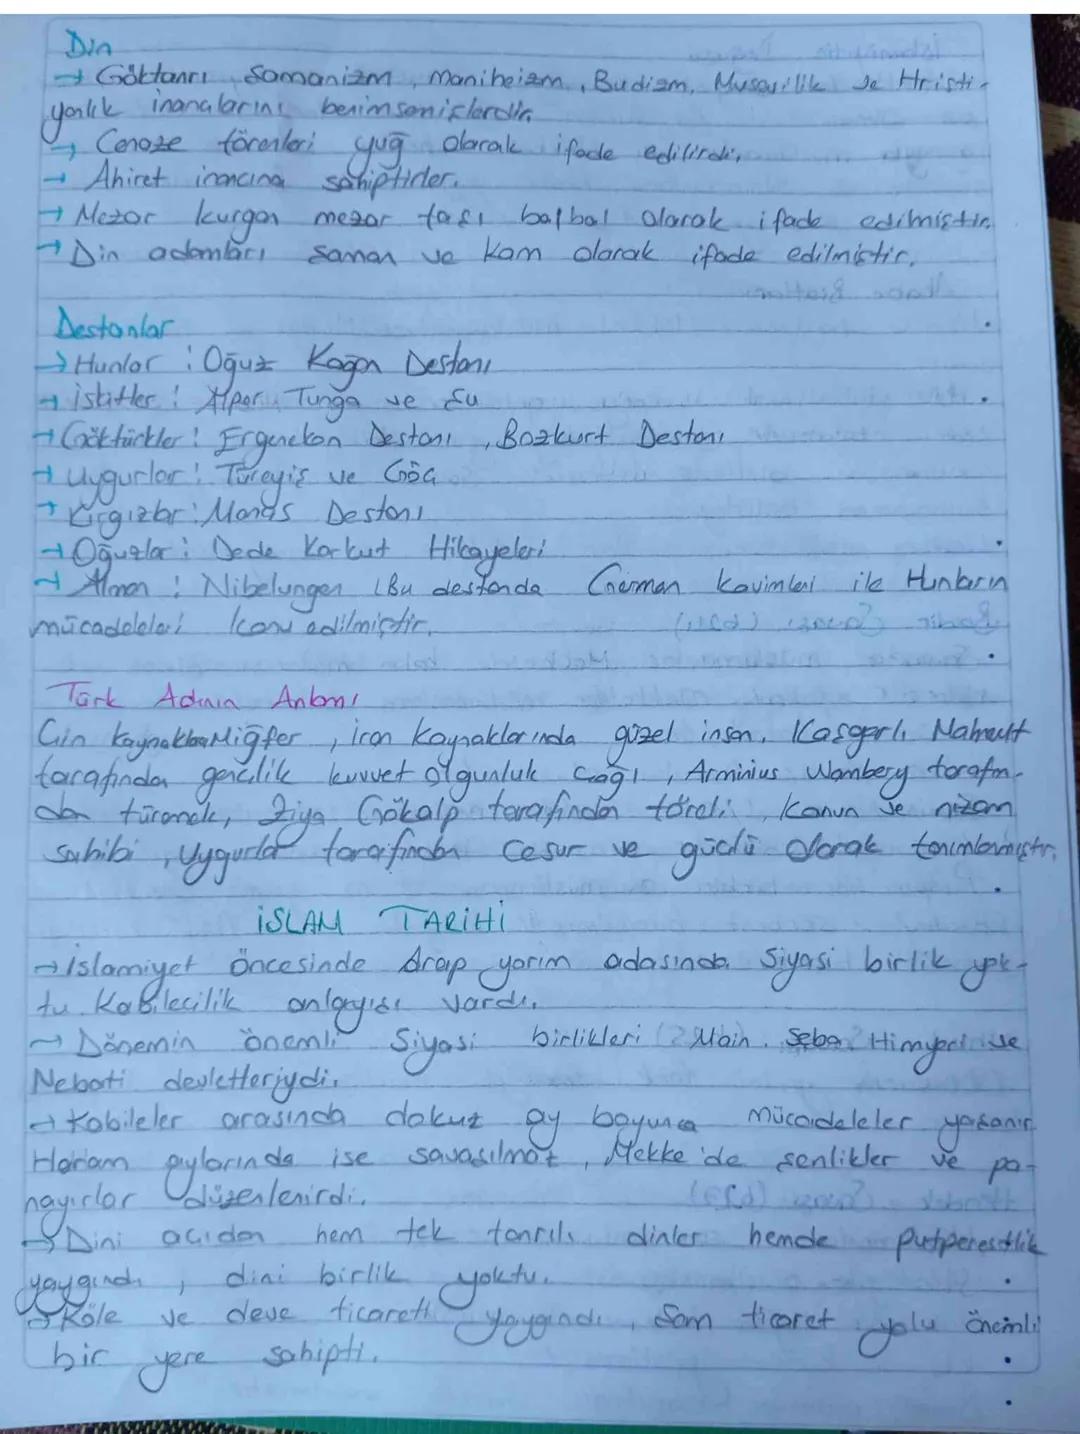 Din
→ Göktanrı, Şamanizm, Maniheizm, Budizm, Musevilik ve Hristi-
yanlık inançlarını benimsemişlerdir.
→ Cenaze törenleri yuğ olarak ifade edilirdi.
→ Ahiret inancına sahiptirler.
→ Mezar kurgan mezar taşı balbal olarak ifade edilmiştir.
→ Din adamları şaman ve kam olarak ifade edilmiştir.
Destanlar
→ Hunlar : Oğuz Kağan Destanı
→ İskitler : Alper Tunga ve Şu
→ Göktürkler : Ergenekon Destanı, Bozkurt Destanı
→ Uygurlar : Türeyiş ve Göç
→ Kırgızlar : Manas Destanı
→ Oğuzlar : Dede Korkut Hikayeleri
→ Alman : Nibelungen (Bu destanda German kavimleri ile Hunların
mücadeleleri konu edilmiştir.
Türk Adının Anlamı
Çin kaynakları Miğfer, iran kaynaklarında güzel insan, Kaşgarlı Mahmut
tarafından gençlik kuvvet olgunluk çağı, Arminius Wambery tarafın-
dan türemek, Ziya Gökalp tarafından töreli, Kanun ve nizam
sahibi, Uygurlar tarafından cesur ve güçlü olarak tanımlanmıştır.
İSLAM TARİHİ
→ İslamiyet öncesinde Arap yarım adasında Siyasi birlik yok-
tu. Kabilecilik anlayışı vardı.
→ Dönemin önemli Siyasi birlikleri Main, Seba, Himyeri ve
Nebati devletleriydi.
→ Kabileler arasında dokuz ay boyunca mücadeleler yaşanır
Haram aylarında ise savaşılmaz, Mekke'de şenlikler ve pa-
nayırlar düzenlenirdi.
→ Dini açıdan hem tek tanrılı dinler hemde putperestlik
yaygındı, dini birlik yoktu.
→ Köle ve deve ticareti yaygındı, Şam ticaret yolu önemli
bir yere sahipti.